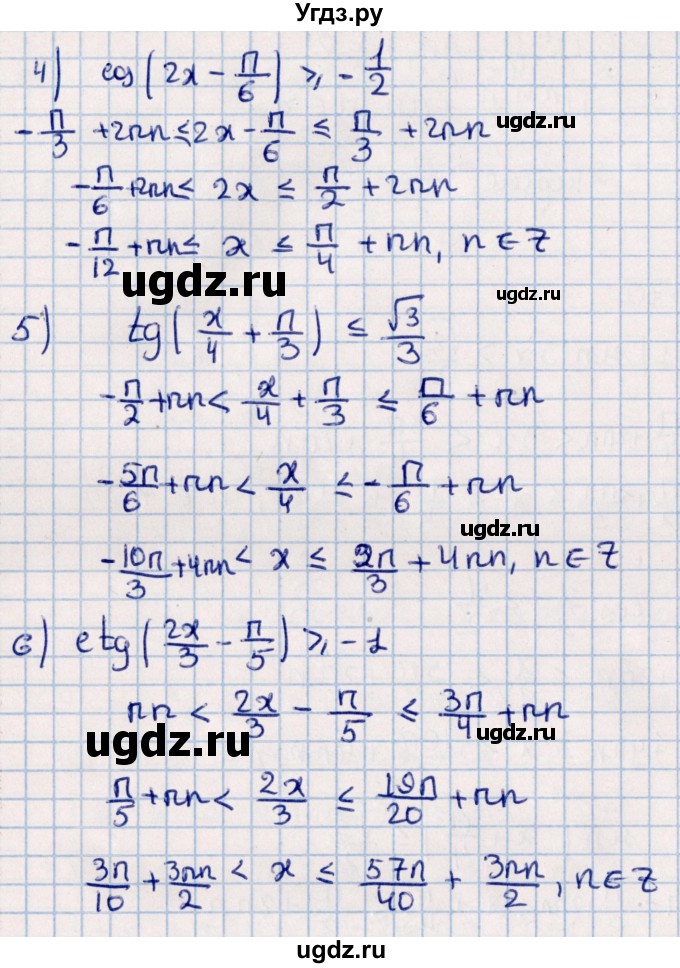 Угдз.ру
4) cos(2x − π/6) ⩾ −1/2
−π/3 + 2πn ≤ 2x − π/6 ≤ π/3 + 2πn
ugdz.ru
−π/6 + 2πn ≤ 2x ≤ π/2 + 2πn
−π/12 + πn ≤ x ≤ π/4 + πn, n ∈ Z
ugdz.ru
ugdz.ru
5) tg(x/4 + π/3) ≤ √3/3
−π/2 + πn < x/4 + π/3 ≤ π/6 + πn
−5π/6 + πn < x/4 ≤ −π/6 + πn
ugdz.ru
−10π/3 + 4πn < x ≤ 2π/3 + 4πn, n ∈ Z
6) ctg(2x/3 − π/5) ⩾ −1
πn < 2x/3 − π/5 ≤ 3π/4 + πn
ugdz.ru
ugdz.ru
π/5 + πn < 2x/3 ≤ 19π/20 + πn
3π/10 + 3πn/2 < x ≤ 57π/40 + 3πn/2, n ∈ Z
ugdz.ru